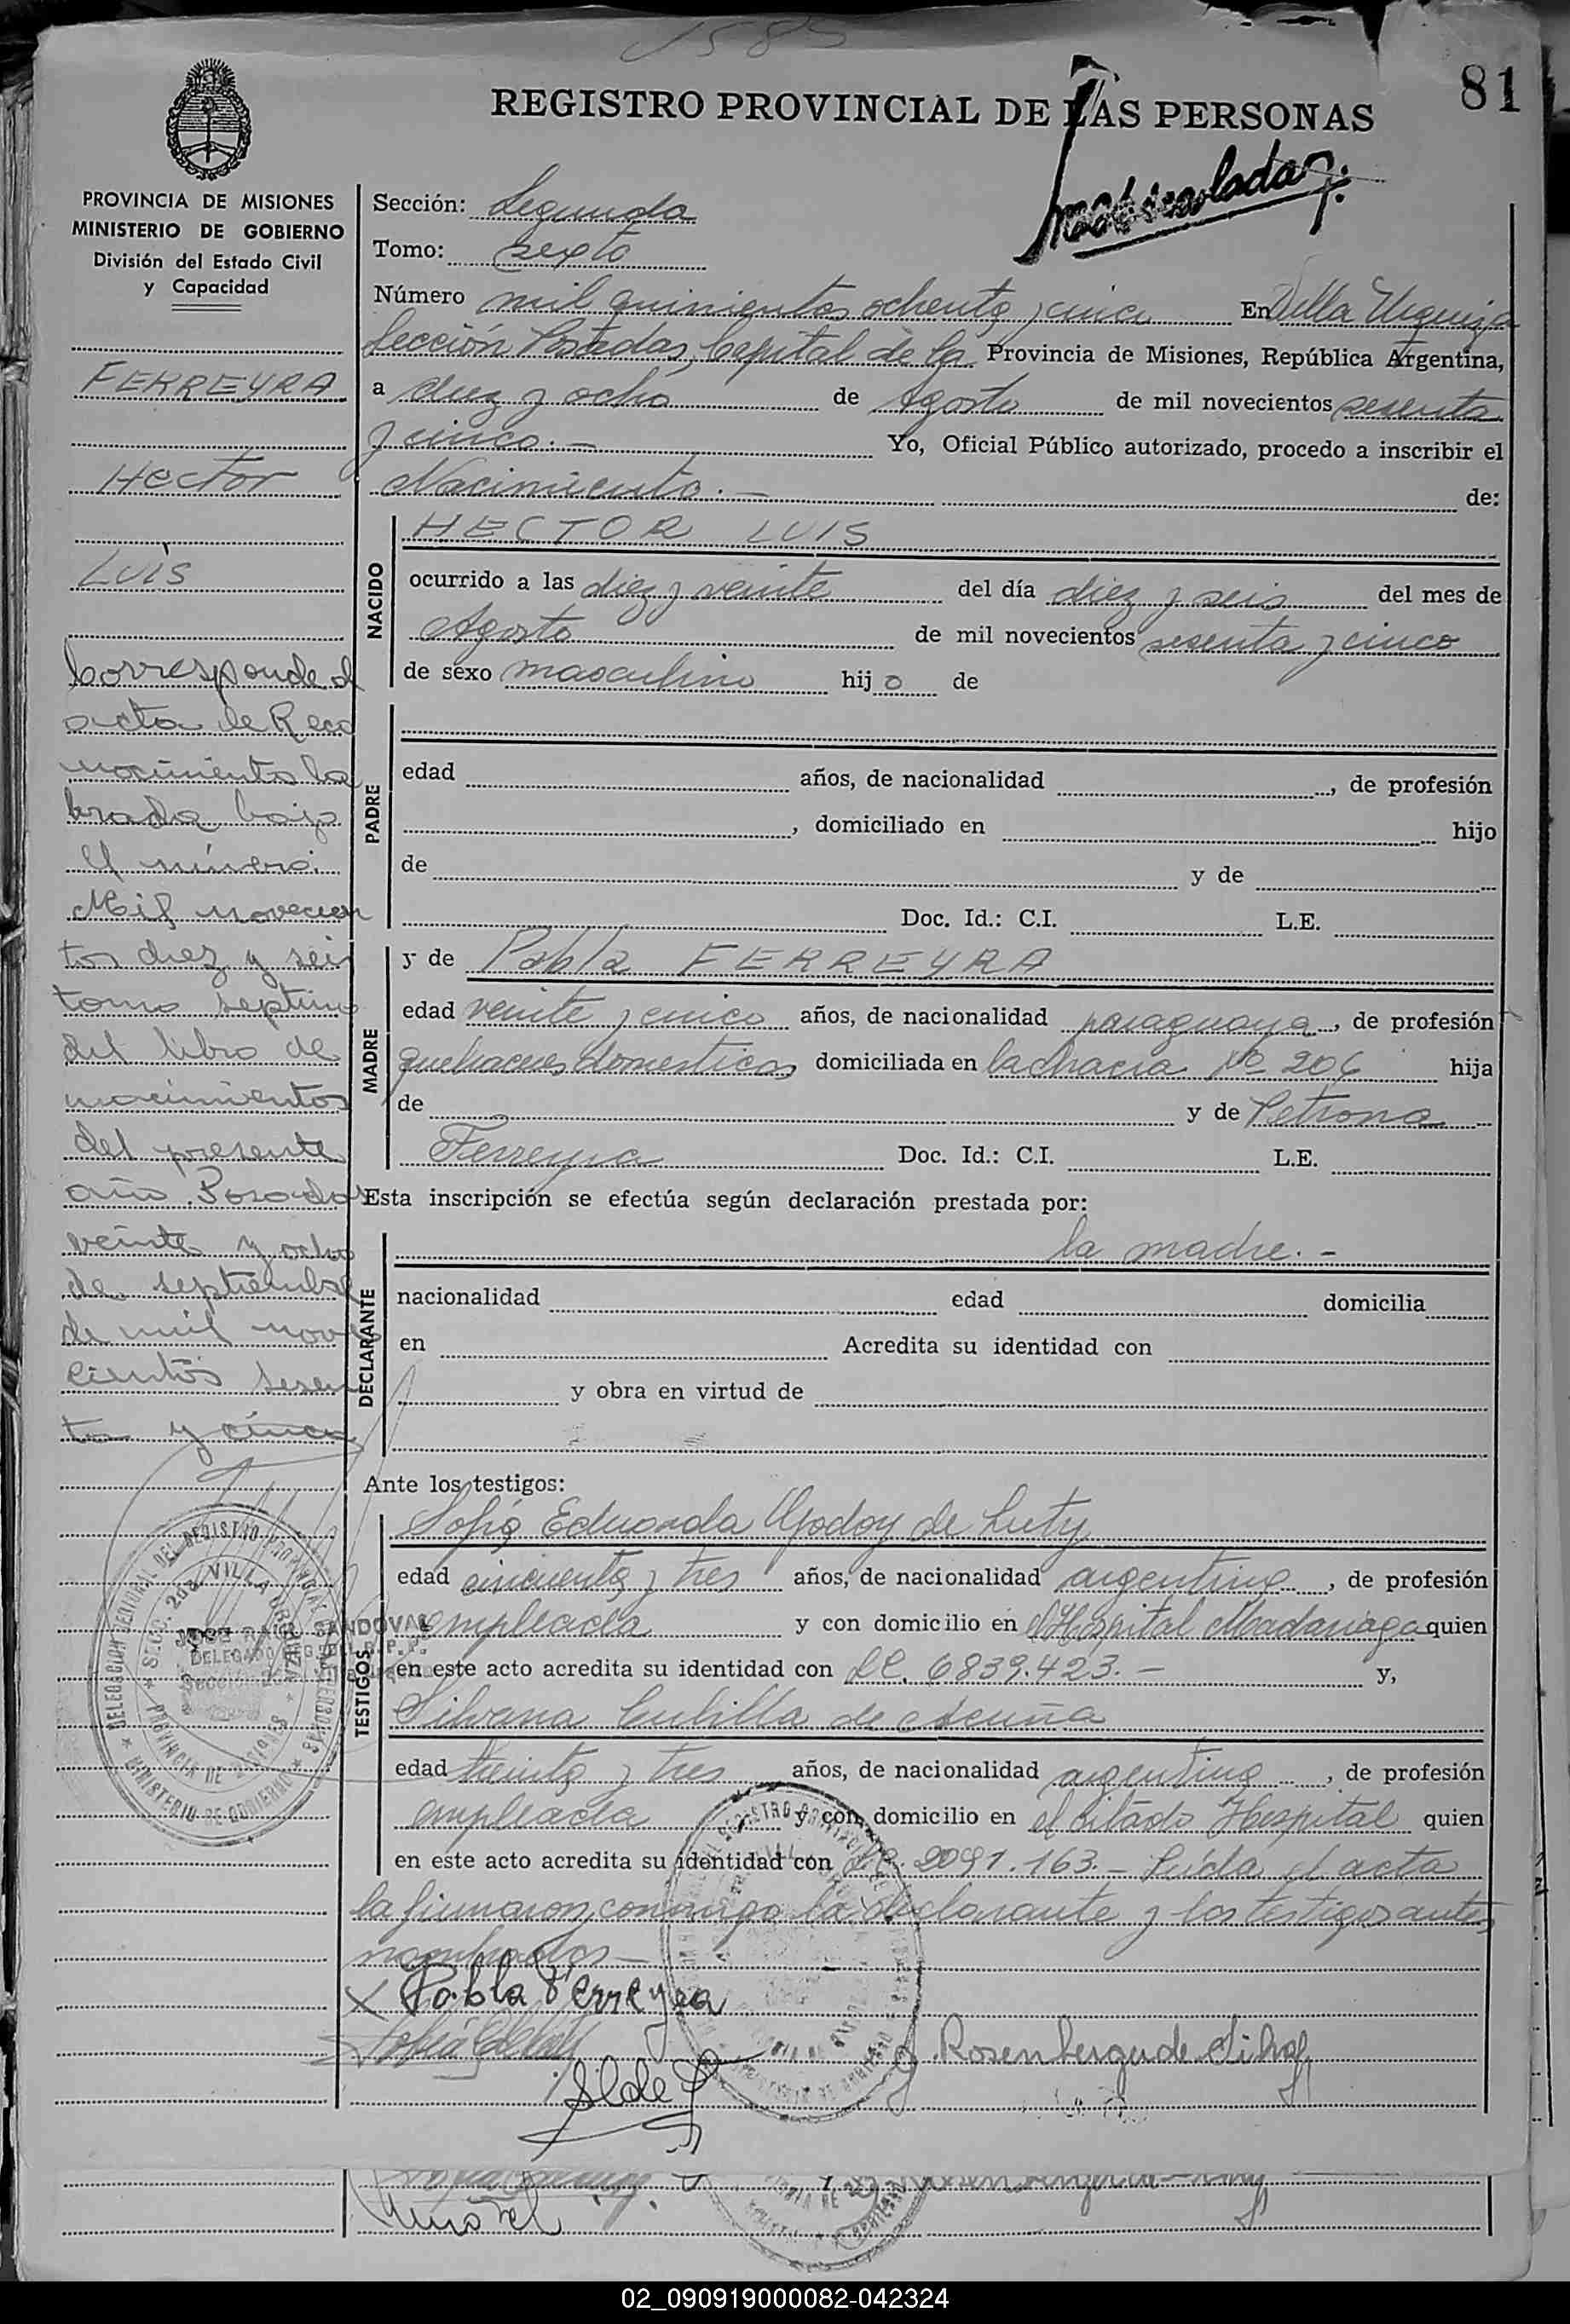 1585
81
REGISTRO PROVINCIAL DE LAS PERSONAS
Matriculada
PROVINCIA DE MISIONES
MINISTERIO DE GOBIERNO
División del Estado Civil
y Capacidad
FERREYRA
Hector
Luis
Corresponde al
acta de Reco
nocimiento la
brada bajo
el número
Mil novecien
tos diez y seis
tomo septimo
del libro de
nacimientos
del presente
año. Posadas
veinte y ocho
de septiembre
de mil nove
cientos sesen
ta y cinco
Sección: Segunda
Tomo: sexto
Número mil quinientos ochenta y cinco En Villa Urquiza
Sección Posadas, Capital de la Provincia de Misiones, República Argentina,
a diez y ocho de Agosto de mil novecientos sesenta
y cinco.— Yo, Oficial Público autorizado, procedo a inscribir el
Nacimiento.— de:
NACIDO
HECTOR LUIS
ocurrido a las diez y veinte del día diez y seis del mes de
Agosto de mil novecientos sesenta y cinco
de sexo masculino hijo de
PADRE
edad años, de nacionalidad , de profesión
, domiciliado en hijo
de y de
Doc. Id.: C.I. L.E.
MADRE
y de Pabla FERREYRA
edad veinte y cinco años, de nacionalidad paraguaya, de profesión
quehaceres domesticos domiciliada en la chacra Nº 206 hija
de y de Petrona
Ferreyra Doc. Id.: C.I. L.E.
Esta inscripción se efectúa según declaración prestada por:
DECLARANTE
la madre.-
nacionalidad edad domicilia
en Acredita su identidad con
y obra en virtud de
Ante los testigos:
TESTIGOS
Sofia Eduarda Godoy de Luty
edad cincuenta y tres años, de nacionalidad argentina, de profesión
empleada y con domicilio en el Hospital Madariaga quien
en este acto acredita su identidad con LC. 6839.423.— y,
Silvana Cubilla de Acuña
edad treinta y tres años, de nacionalidad argentina, de profesión
empleada y con domicilio en el citado Hospital quien
en este acto acredita su identidad con LC. 2091.163.— Leída el acta
la firmaron conmigo la declarante y los testigos antes
nombrados—
X Pabla Ferreyra
Rosenberger de
DELEGACION CENTRAL DEL REGISTRO PROVINCIAL DE LAS PERSONAS
MINISTERIO DE GOBIERNO
SECC. 2da. VILLA URQUIZA
PROVINCIA DE MISIONES
JOSE RAUL SANDOVAL
DELEGADO
02_090919000082-042324